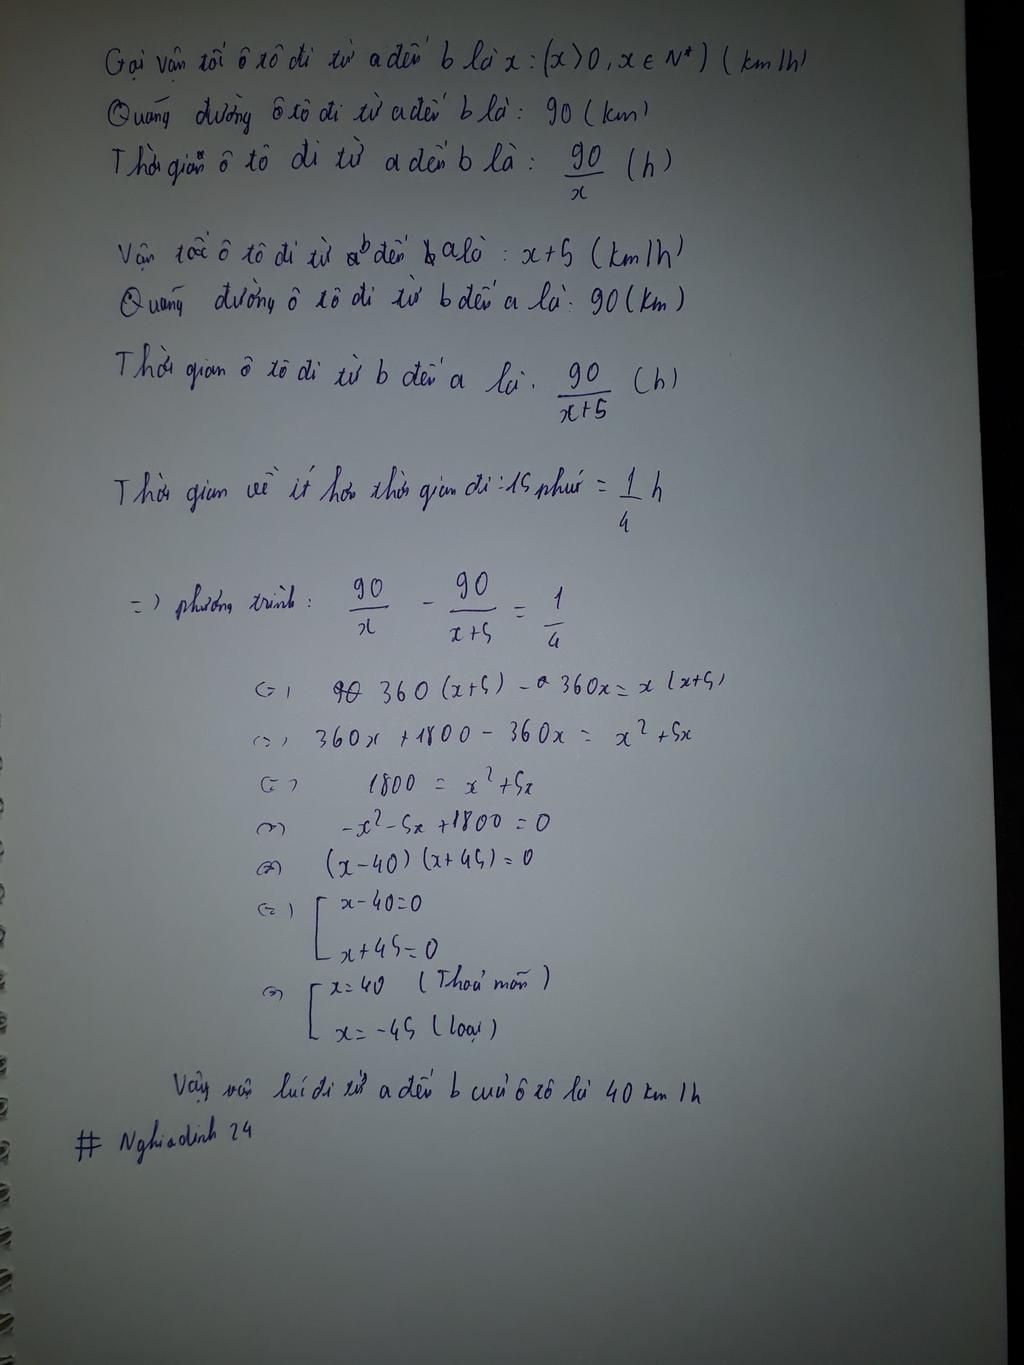 Gọi vận tốc ô tô đi từ a đến b là x : (x > 0, x ∈ N*) (km/h)
Quãng đường ô tô đi từ a đến b là : 90 (km)
Thời gian ô tô đi từ a đến b là : 90/x (h)
Vận tốc ô tô đi từ b đến a là : x+5 (km/h)
Quãng đường ô tô đi từ b đến a là : 90 (km)
Thời gian ô tô đi từ b đến a là : 90/(x+5) (h)
Thời gian về ít hơn thời gian đi : 15 phút = 1/4 h
=) phương trình : 90/x - 90/(x+5) = 1/4
(=) 360 (x+5) - 360x = x (x+5)
(=) 360x + 1800 - 360x = x² + 5x
(=) 1800 = x² + 5x
(=) -x² - 5x + 1800 = 0
(=) (x-40) (x+45) = 0
(=) [ x-40=0
x+45=0
(=) [ x=40 (Thoả mãn)
x=-45 (loại)
Vậy vận lúc đi từ a đến b của ô tô là 40 km/h
# Nghiadinh 24